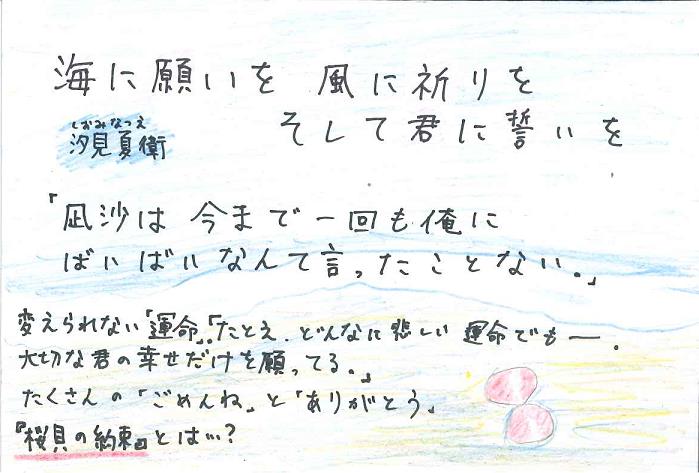 海に願いを 風に祈りを
そして君に誓いを
しおみなつえ
汐見夏衛
「凪沙は 今まで一回も俺に
ばいばいなんて言ったことない。」
変えられない「運命」。「たとえ、どんなに悲しい 運命でも―.
大切な君の幸せだけを願ってる。」
たくさんの「ごめんね」と「ありがとう」
『桜貝の約束』とは…?